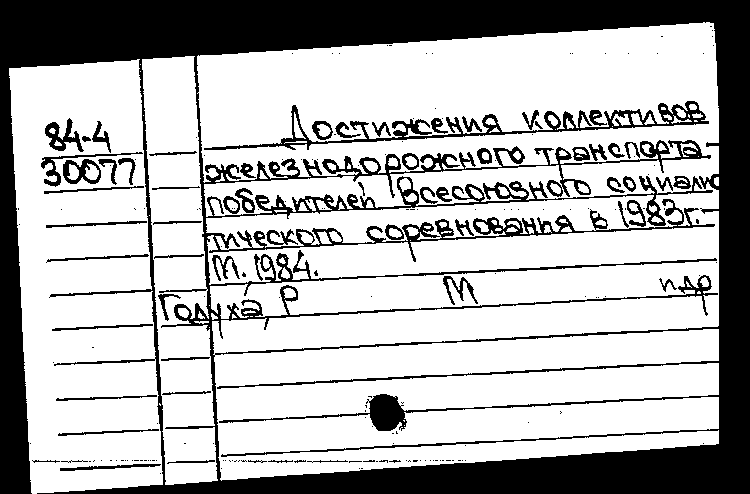 84-4
30077
Достижения коллективов
железнодорожного транспорта-
победителей Всесоюзного социалис
тического соревнования в 1983г.-
М., 1984.
Голуха, Р М и др